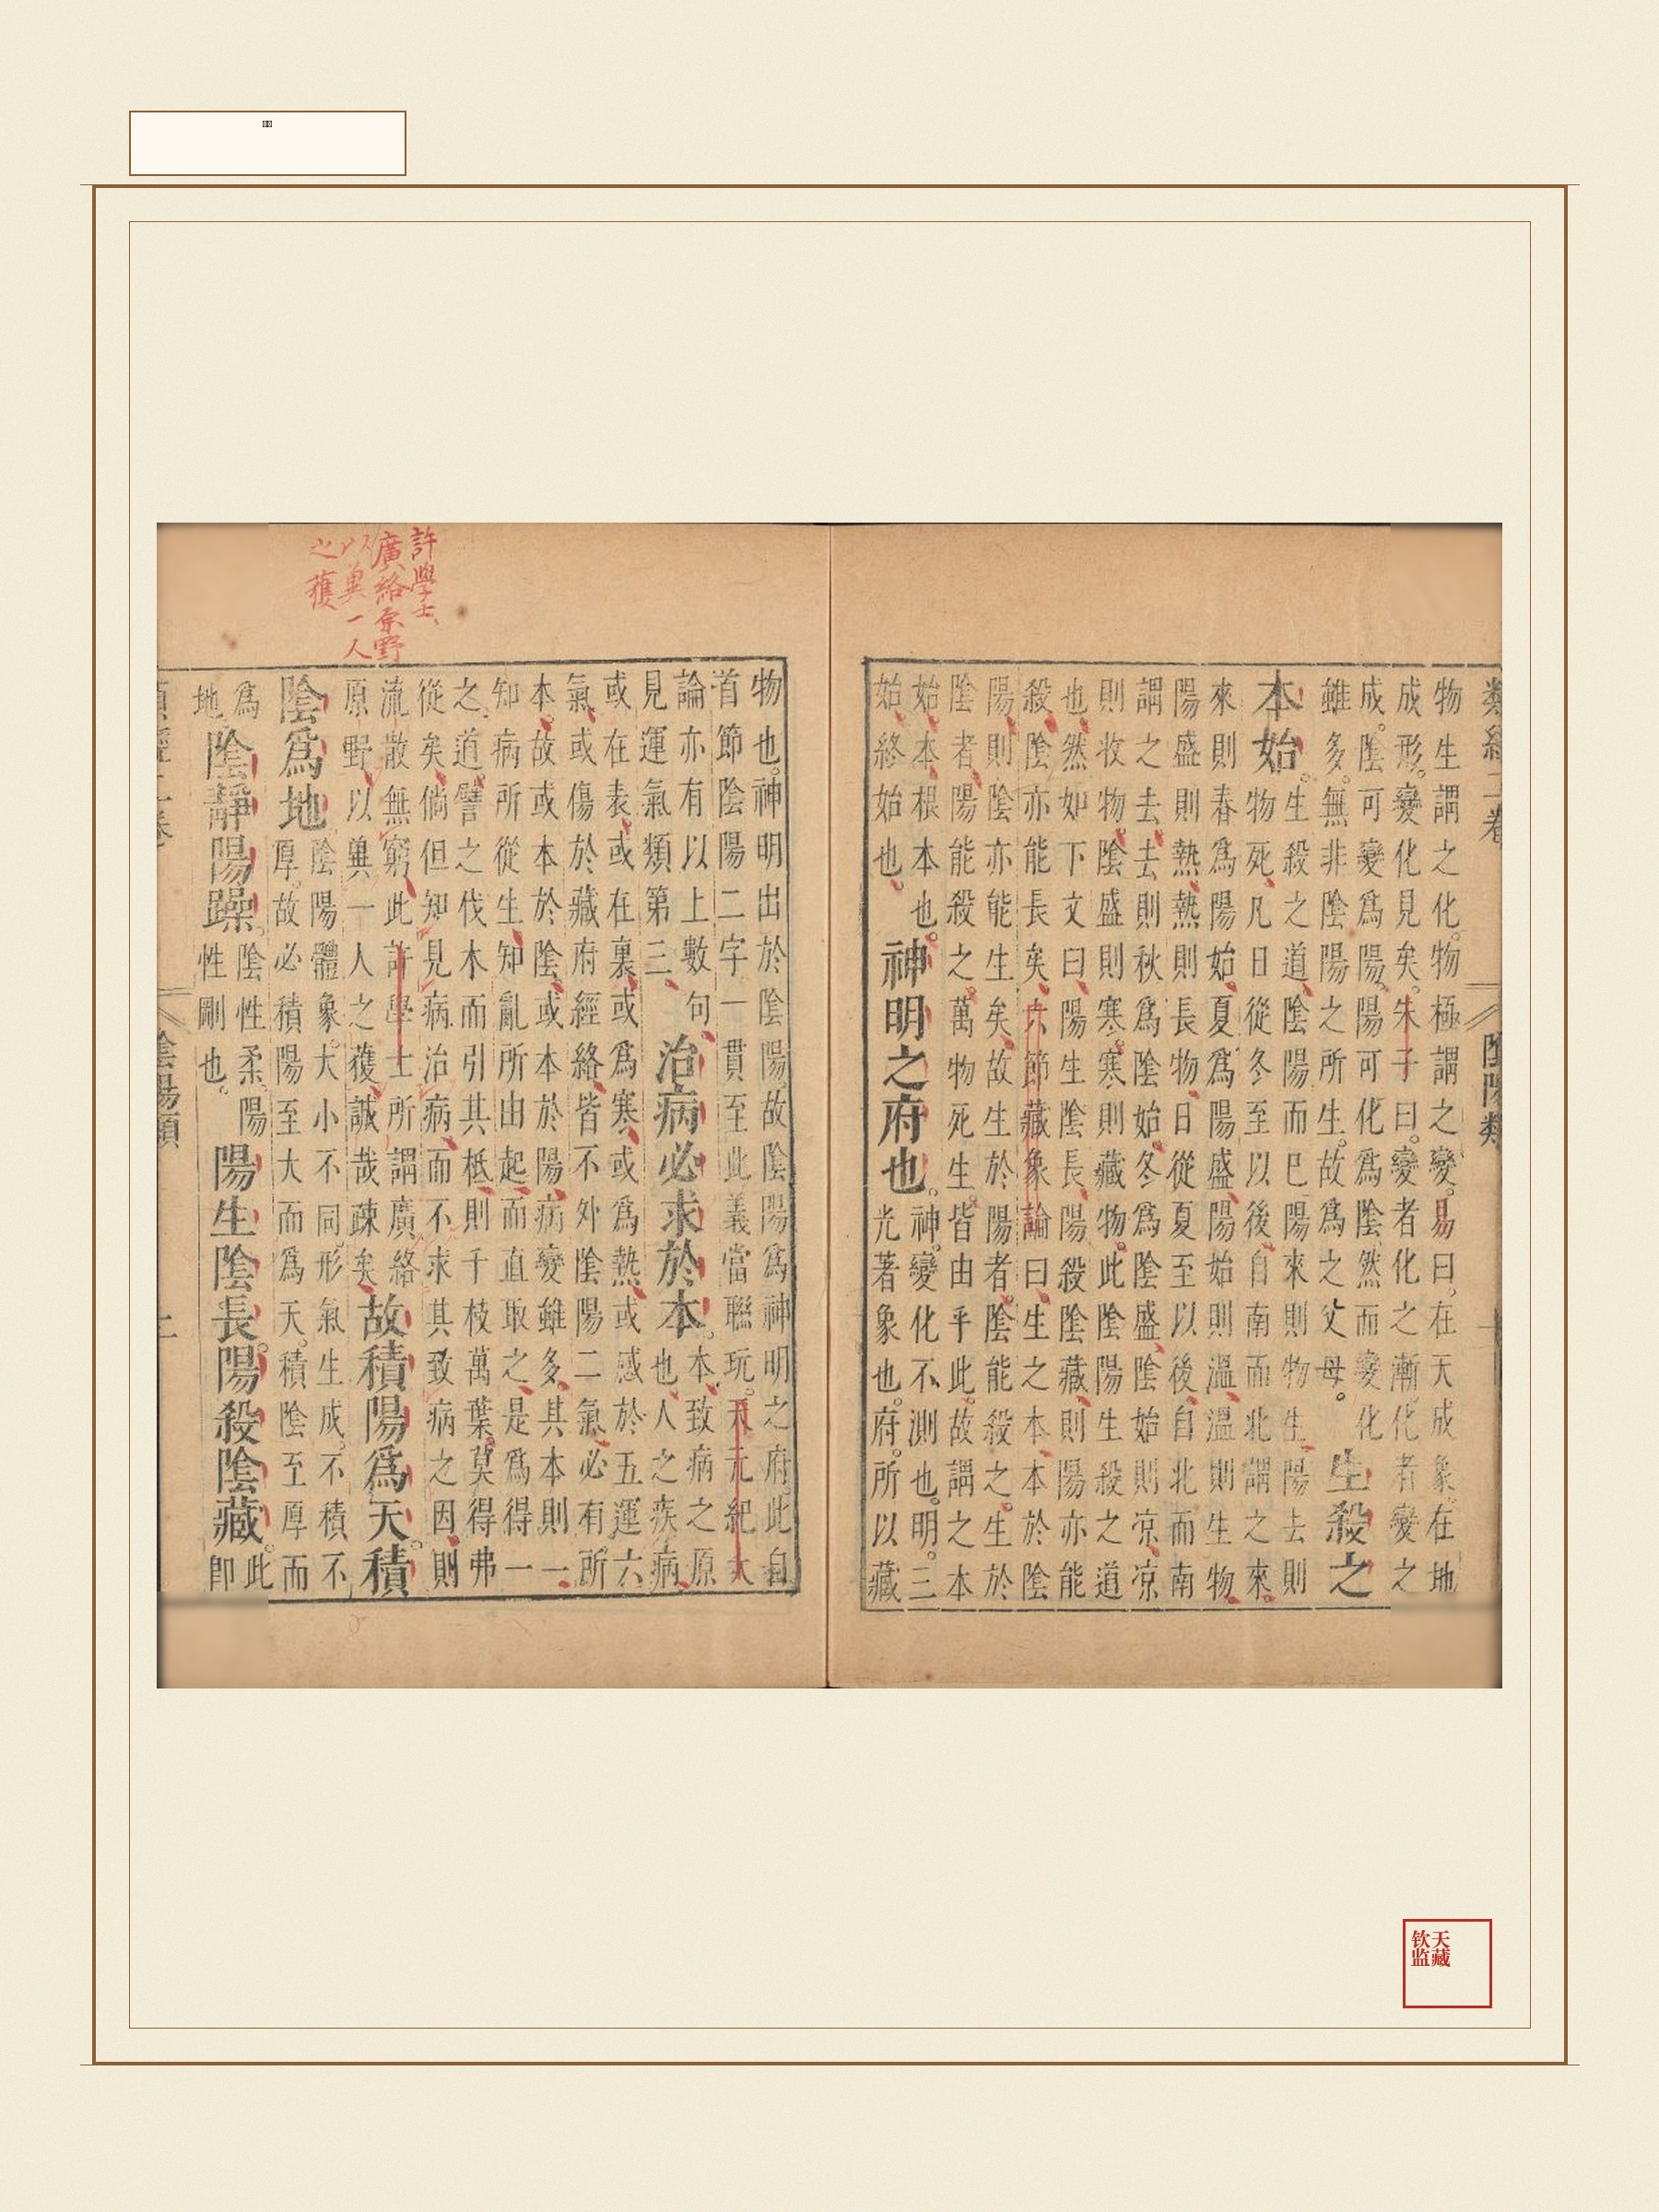 類經二卷 陰陽類
物生謂之化。物極謂之變。易曰。在天成象。在地
成形。變化見矣。朱子曰。變者化之漸。化者變之
成。陰可變爲陽。陽可化爲陰。然而變化
雖多。無非陰陽之所生。故爲之父母。
生殺之
本始。
生殺之道。陰陽而已。陽來則物生。陽去則
物死。凡日從冬至以後。自南而北。謂之來。
來則春爲陽始。夏爲陽盛。陽始則溫。溫則生物。
陽盛則熱。熱則長物。日從夏至以後。自北而南
謂之去。去則秋爲陰始。冬爲陰盛。陰始則凉。凉
則收物。陰盛則寒。寒則藏物。此陰陽生殺之道
也。然如下文曰。陽生陰長。陽殺陰藏。則陽亦能
殺。陰亦能長矣。六節藏象論曰。生之本。本於陰
陽。則陰亦能生矣。故生於陽者。陰能殺之。生於
陰者。陽能殺之。萬物死生。皆由乎此。故謂之本
始。本。根本也。
始。終始也。
神明之府也。
神。變化不測也。明。三
光著象也。府。所以藏
物也。神明出於陰陽。故陰陽爲神明之府。此自
首節陰陽二字。一貫至此。義當聯玩。天元紀大
論亦有以上數句
見運氣類第三
治病必求於本。
本。致病之原
也。人之疾病。
或在表。或在裏。或爲寒。或爲熱。或感於五運六
氣。或傷於藏府經絡。皆不外陰陽二氣。必有所
本。故或本於陰。或本於陽。病變雖多。其本則一。
知病所從生。知亂所由起。而直取之。是爲得一
之道。譬之伐木而引其柢。則千枝萬葉。莫得弗
從矣。倘但知見病治病。而不求其致病之因。則
流散無窮。此許學士所謂廣絡
原野。以兾一人之獲。誠哉疎矣。
故積陽爲天。積
陰爲地
陰陽體象。大小不同。形氣生成。不積不
厚。故必積陽至大而爲天。積陰至厚而
爲
地
陰靜陽躁。
陰性柔。陽
性剛也。
陽生陰長。陽殺陰藏。
此
卽
許學士
廣絡原野
以兾一人
之獲
钦天
监藏